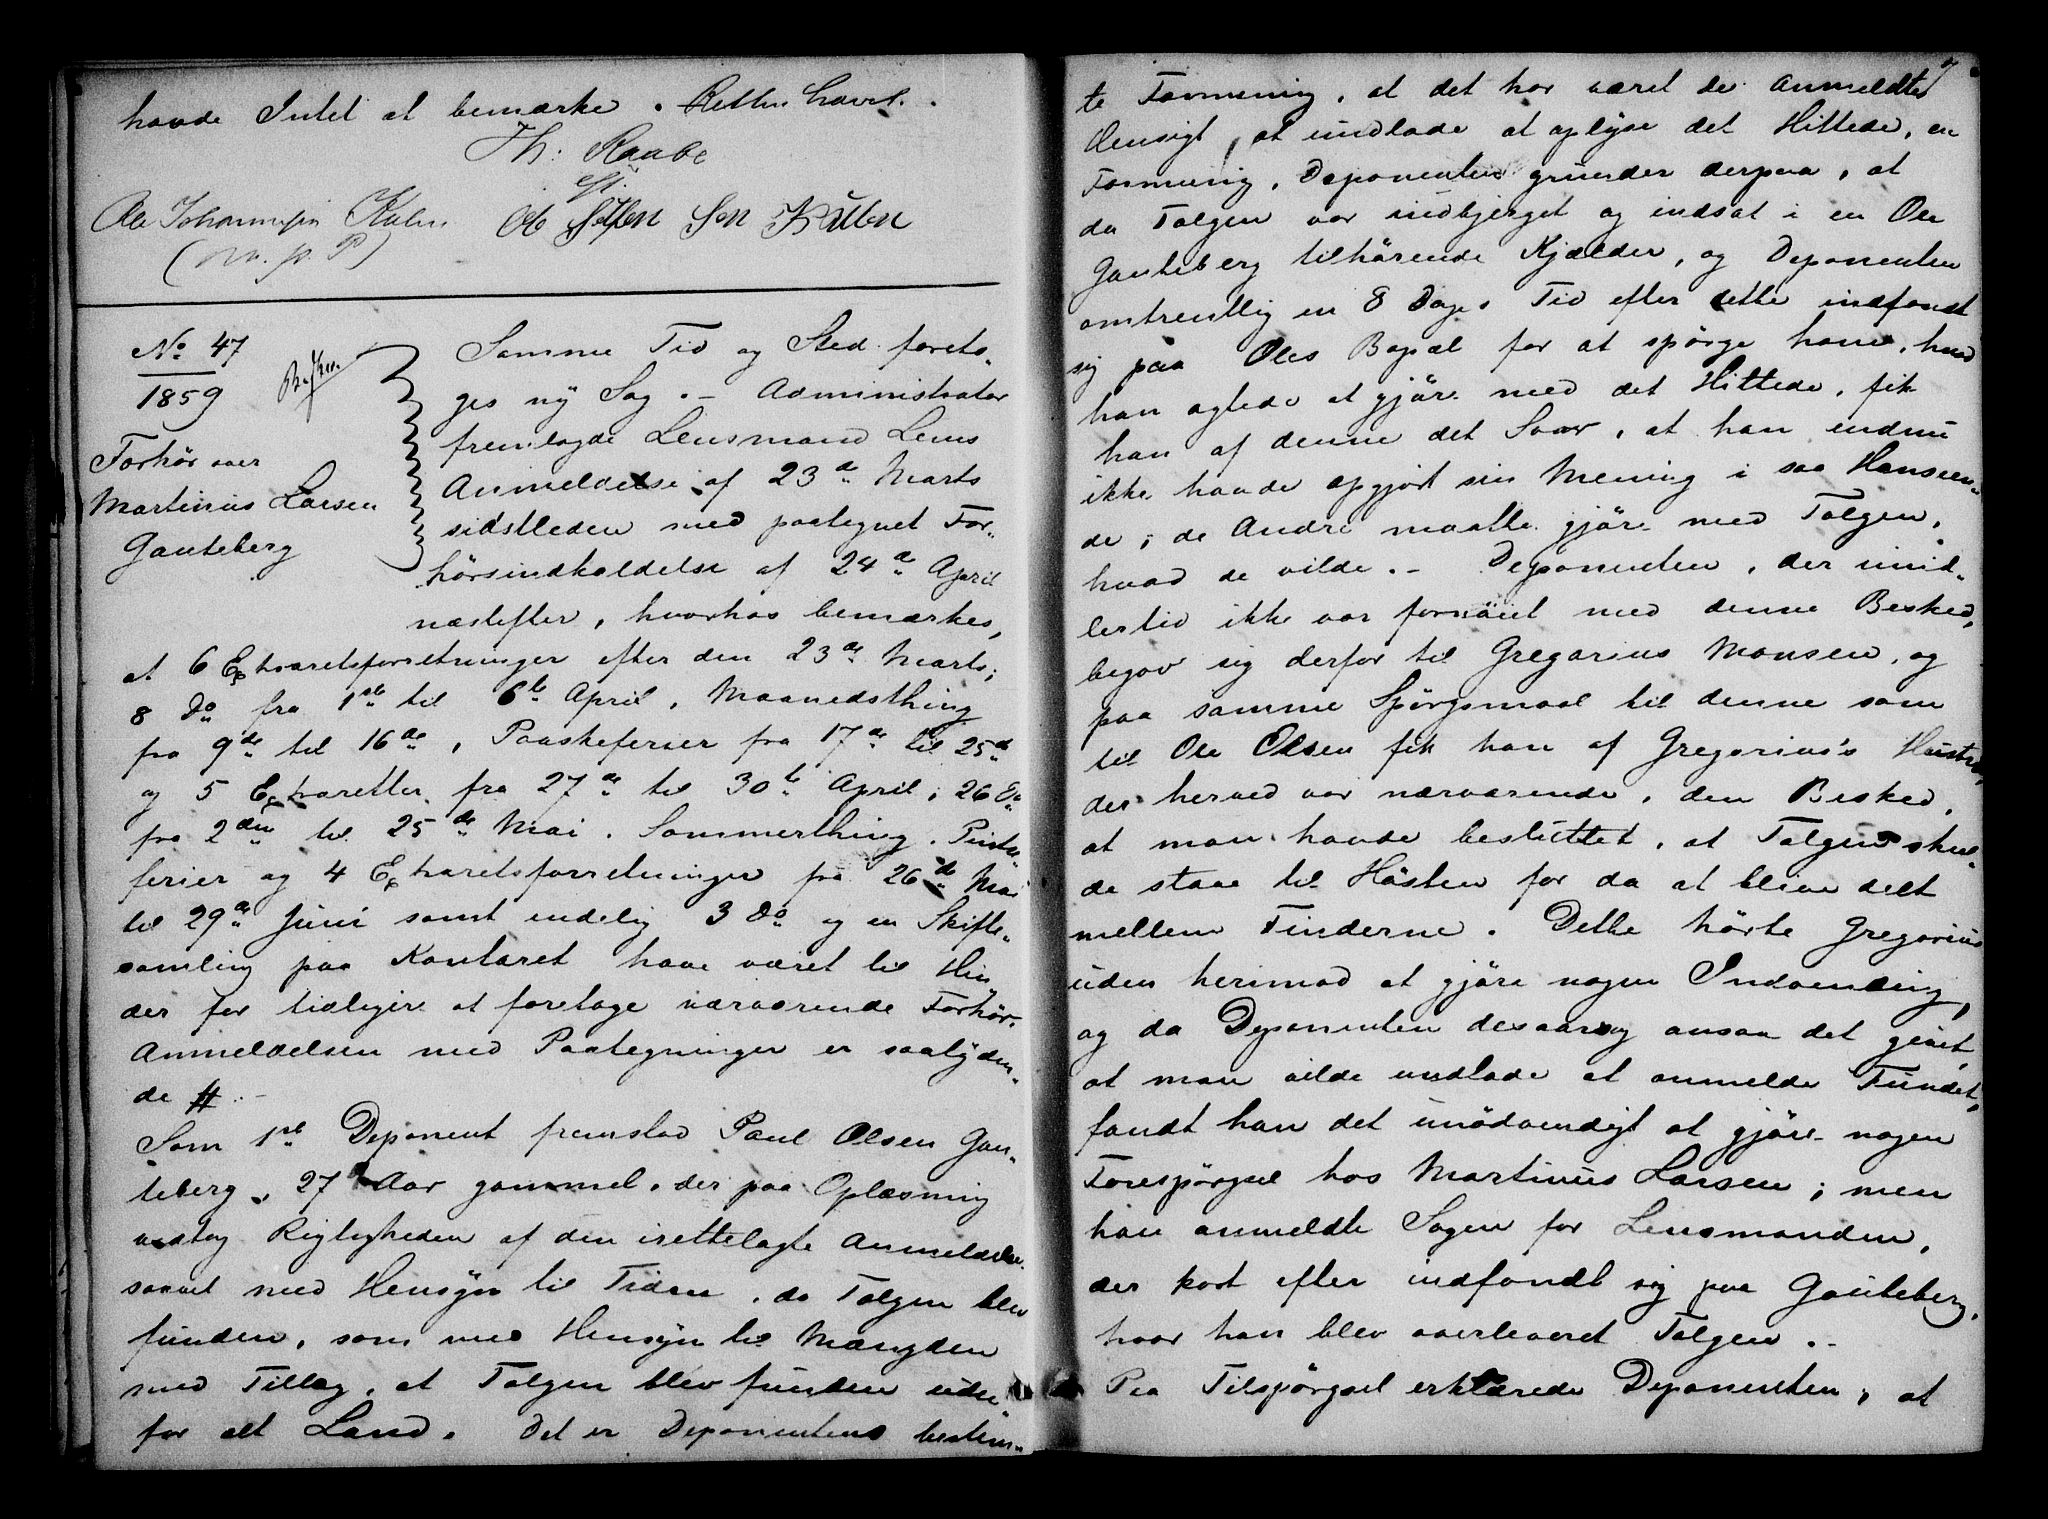 havde Intet at bemærke. Retten hævet.
Th: Raabe
cst.
Ole Johannesen Ole Son
(m. p. P)
No 47
1859
Forhør over
Martinius Larsen
Gauteberg
Samme Tid og Sted foreto-
ges ny Sag. - Administrator
fremlagde Lensmand Lems
Anmeldelse af 23de Marts
sidstleden med paategnet For-
hörsindkaldelse af 24de April
næstefter, hvorhos bemærkes,
at 6 Extraretsforretninger efter den 23de Marts;
8 do fra 1ste til 6te April, Maanedsthing
fra 9de til 16de, Paaskeferier fra 17de til 25de
og 5 Extraretter fra 27de til 30te April; 26 do
fra 2den til 25de Mai. Sommerthing. Pintse-
ferier og 4 Extraretsforretninger fra 26de Mai
til 29de Juni samt endelig 3 do og en Skifte-
samling paa Kontoret have været til Hin-
der for tidligere at foretage nærværende Forhør.
Anmeldelsen med Paategninger er saalyden-
de #. -
Som 1ste Deponent fremstod Paul Olsen Gau-
teberg, 27 Aar gammel, der paa Oplæsning
vedtog Rigtigheden af den irettelagte Anmeldelse
saavel med Hensyn til Tiden, da Talgen blev
funden, som med Hensyn til Mængden
med Tillæg, at Talgen blev funden uden-
for alt Land. Det er Deponentens bestem-
7
te Formening, at det har været de Anmeldtes
Hensigt, at undlade at oplyse det Hittede, en
Formening, Deponenten grunder derpaa, at
da Talgen var indbjerget og indsat i en Ole
Gauteberg tilhörende Kjælder, og Deponenten
omtrentlig en 8 Dages Tid efter dette indfandt
sig paa Oles Bopæl for at spörge ham, hvad
han agtede at gjöre med det Hittede, fik
han af denne det Svar, at han endnu
ikke havde opgjort sin Mening i saa Henseen-
de; de Andre maatte gjöre med Talgen,
hvad de vilde. - Deponenten, der imid-
lertid ikke var fornöiet med denne Besked,
begav sig derfor til Gregorius Monsen, og
paa samme Spörgsmaal til denne som
til Ole Olsen fik han af Gregorius's Hustru,
der herved var nærværende, den Besked,
at man havde besluttet, at Talgen skul-
de staae til Hösten for da at blive delt
mellem Finderne. Dette hörte Gregorius
uden herimod at gjöre nogen Indvending,
og da Deponenten desaarsag ansaa det givet,
at man vilde undlade at anmelde Fundet,
fandt han det unödvendigt at gjöre nogen
Forespörgsel hos Martinius Larsen; men
han anmeldte Sagen for Lensmanden,
der kort efter indfandt sig paa Gauteberg,
hvor han blev overleveret Talgen. -
Paa Tilspörgsel erklærede Deponenten, at